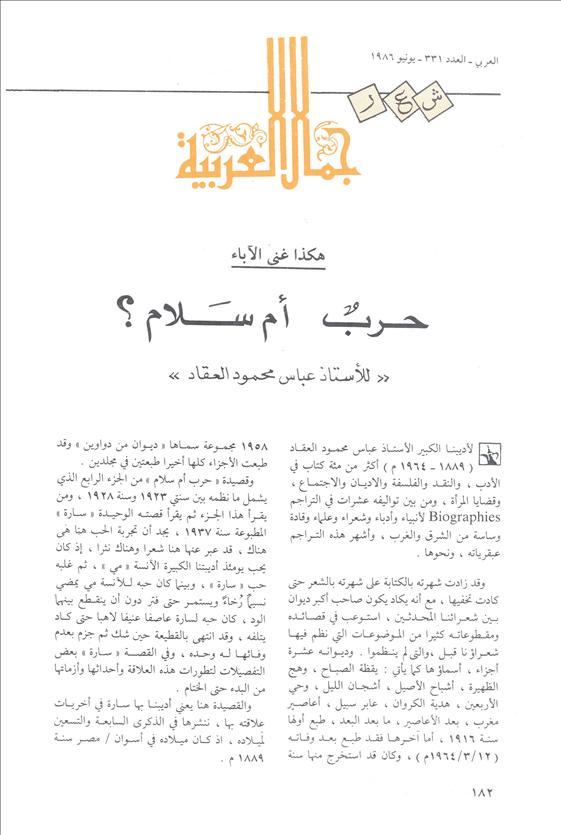 العربي ـ العدد ٣٣١ ـ يونيو ١٩٨٦
ش ع ر
جمال العربية
هكذا غنى الآباء
حربٌ أم سَلام ؟
« للأستاذ عباس محمود العقاد »
لأديبنا الكبير الأستاذ عباس محمود العقاد
( ١٨٨٩ ـ ١٩٦٤ م ) أكثر من مئة كتاب في
الأدب ، والنقد والفلسفة والاديان والاجتماع ،
وقضايا المرأة ، ومن بين تواليفه عشرات في التراجم
Biographies لأنبياء وأدباء وشعراء وعلماء وقادة
وساسة من الشرق والغرب ، وأشهر هذه التراجم
عبقرياته ، ونحوها .
وقد زادت شهرته بالكتابة على شهرته بالشعر حتى
كادت تخفيها ، مع أنه يكاد يكون صاحب أكبر ديوان
بين شعرائنا المحدثين ، استوعب في قصائده
ومقطوعاته كثيرا من الموضوعات التي نظم فيها
شعراؤنا قبل ، والتى لم ينظموا . وديوانه عشرة
أجزاء ، أسماؤها كما يأتي : يقظة الصباح ، وهج
الظهيرة ، أشباح الأصيل ، أشجان الليل ، وحي
الأربعين ، هدية الكروان ، عابر سبيل ، أعاصير
مغرب ، بعد الأعاصير ، ما بعد البعد ، طبع أولها
سنة ١٩١٦ ، أما آخرها فقد طبع بعد وفاته
( ١٩٦٤/٣/١٢م ) ، وكان قد استخرج منها سنة
١٩٥٨ مجموعة سماها « ديوان من دواوين » وقد
طبعت الأجزاء كلها أخيرا طبعتين في مجلدين .
وقصيدة « حرب أم سلام » من الجزء الرابع الذي
يشمل ما نظمه بين سنتي ١٩٢٣ وسنة ١٩٢٨ ، ومن
يقرأ هذا الجزء ثم يقرأ قصته الوحيدة « سارة »
المطبوعة سنة ١٩٣٧ ، يجد أن تجربة الحب هنا هي
هناك ، قد عبر عنها هنا شعرا وهناك نثرا ، إذ كان
يحب يومئذ أديبتنا الكبيرة الآنسة « مي » ، ثم غلبه
حب « سارة » ، وبينما كان حبه للآنسة مي يمضي
نسيماً رُخاءً ويستمر حتى فتر دون أن ينقطع بينهما
الود ، كان حبه لسارة عاصفا عنيفا لاهبا حتى كاد
يتلفه ، وقد انتهى بالقطيعة حين شك ثم جزم بعدم
وفائها له وحده ، وفي القصة « سارة » بعض
التفصيلات لتطورات هذه العلاقة وأحداثها وأزماتها
من البدء حتى الختام .
والقصيدة هنا يعني أديبنا بها سارة في أخريات
علاقته بها ، ننشرها في الذكرى السابعة والتسعين
لميلاده ، اذ كان ميلاده في أسوان / مصر سنة
١٨٨٩ م .
١٨٢